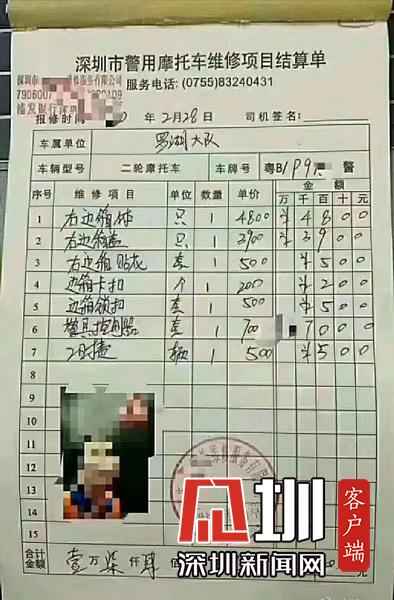 深圳市警用摩托车维修项目结算单
深圳市 维修服务有限公司
服务电话: (0755)83240431
7906007 0109
浦发银行深圳
报修时间 年2月28日 司机签名:
车属单位 罗湖大队
车辆型号 二轮摩托车 车牌号 粤B/P9 警
序号 维修项目 单位 数量 单价 金额
万 千 百 十 元
1 右边箱体 只 1 4800 ¥4800
2 右边箱盖 只 1 3900 ¥3900
3 右边箱贴花 套 1 500 ¥500
4 边箱卡扣 个 1 200 ¥200
5 边箱锁扣 套 1 500 ¥500
6 警具控制器 套 1 700 700
7 工时费 辆 1 500 ¥500
8
9
10
11
12
13
14
15
合计金额 壹万柒仟肆佰
见圳
客户端
深圳新闻网